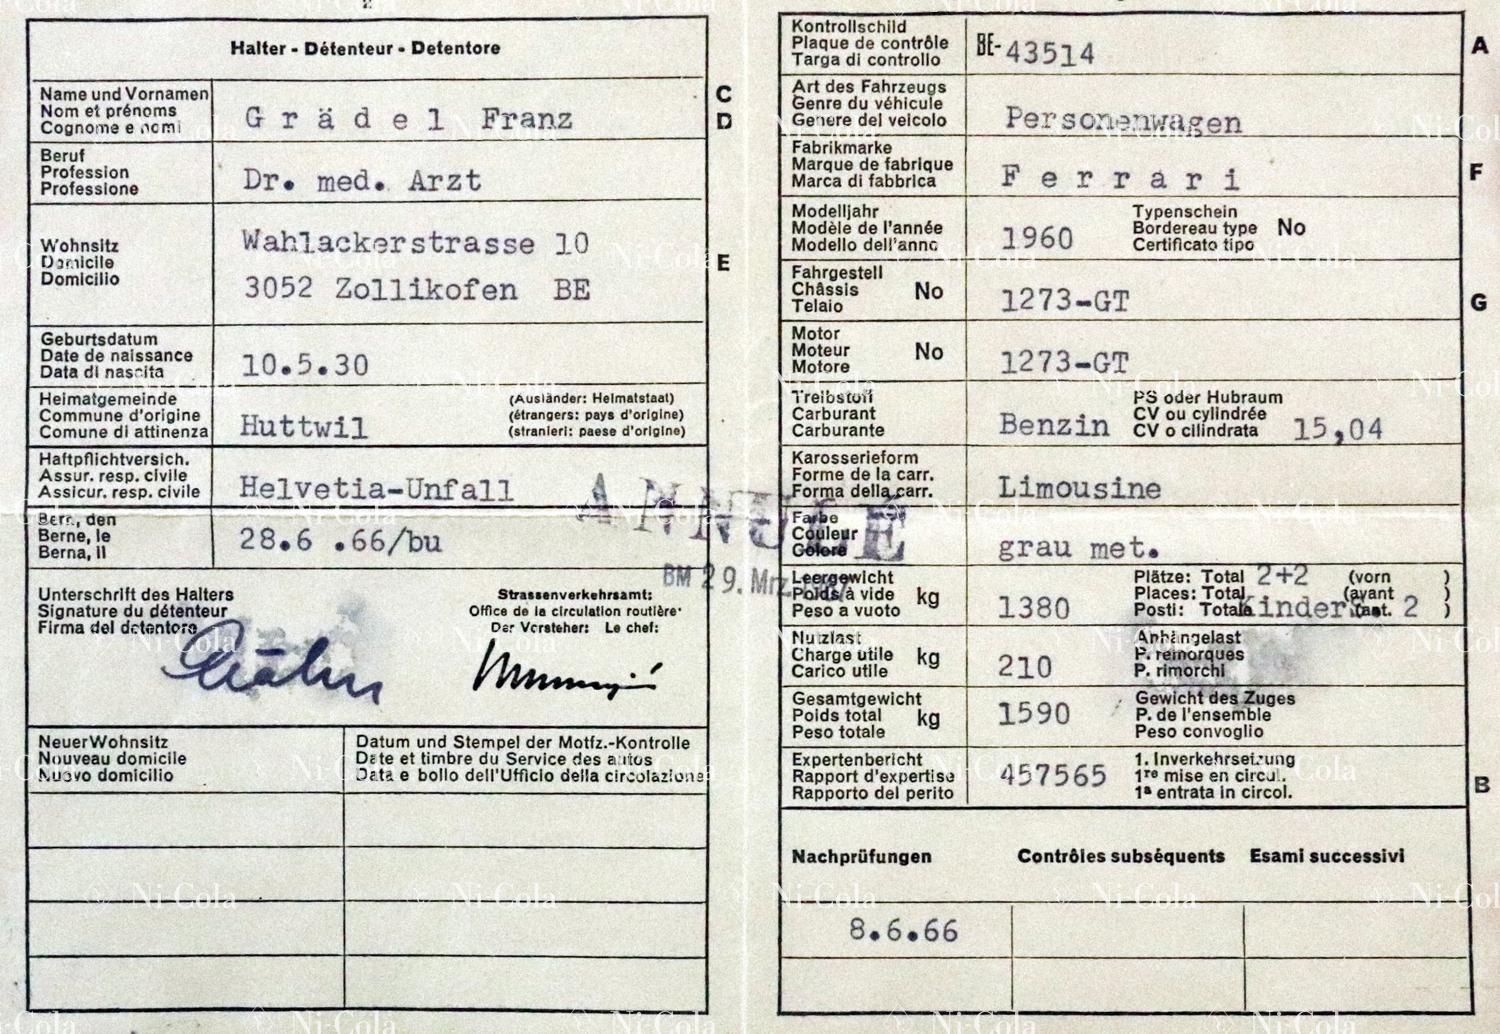 Halter - Détenteur - Detentore
Name und Vornamen
Nom et prénoms
Cognome e nomi
Grädel Franz
C
D
Beruf
Profession
Professione
Dr. med. Arzt
Wohnsitz
Domicile
Domicilio
Wahlackerstrasse 10
3052 Zollikofen BE
E
Geburtsdatum
Date de naissance
Data di nascita
10.5.30
Heimatgemeinde
Commune d'origine
Comune di attinenza
Huttwil
(Ausländer: Heimatstaat)
(étrangers: pays d'origine)
(stranieri: paese d'origine)
Haftpflichtversich.
Assur. resp. civile
Assicur. resp. civile
Helvetia-Unfall
Bern, den
Berne, le
Berna, il
28.6 .66/bu
ANNULÉ
BM 29. Mrz.
Unterschrift des Halters
Signature du détenteur
Firma del detentore
Strassenverkehrsamt:
Office de la circulation routière:
Der Vorsteher: Le chef:
Neuer Wohnsitz
Nouveau domicile
Nuovo domicilio
Datum und Stempel der Motfz.-Kontrolle
Date et timbre du Service des autos
Data e bollo dell'Ufficio della circolazione
Kontrollschild
Plaque de contrôle
Targa di controllo
BE-43514
A
Art des Fahrzeugs
Genre du véhicule
Genere del veicolo
Personenwagen
Fabrikmarke
Marque de fabrique
Marca di fabbrica
Ferrari
F
Modelljahr
Modèle de l'année
Modello dell'anno
1960
Typenschein
Bordereau type No
Certificato tipo
Fahrgestell
Châssis No
Telaio
1273-GT
G
Motor
Moteur No
Motore
1273-GT
Treibstoff
Carburant
Carburante
Benzin
PS oder Hubraum
CV ou cylindrée
CV o cilindrata
15,04
Karosserieform
Forme de la carr.
Forma della carr.
Limousine
Farbe
Couleur
Colore
grau met.
Leergewicht
Poids à vide kg
Peso a vuoto
1380
Plätze: Total 2+2 (vorn )
Places: Total (avant )
Posti: Totale Kinder (ant. 2 )
Nutzlast
Charge utile kg
Carico utile
210
Anhängelast
P. remorques
P. rimorchi
Gesamtgewicht
Poids total kg
Peso totale
1590
Gewicht des Zuges
P. de l'ensemble
Peso convoglio
Expertenbericht
Rapport d'expertise
Rapporto del perito
457565
1. Inverkehrsetzung
1re mise en circul.
1a entrata in circol.
B
Nachprüfungen Contrôles subséquents Esami successivi
8.6.66
© Ni-Cola